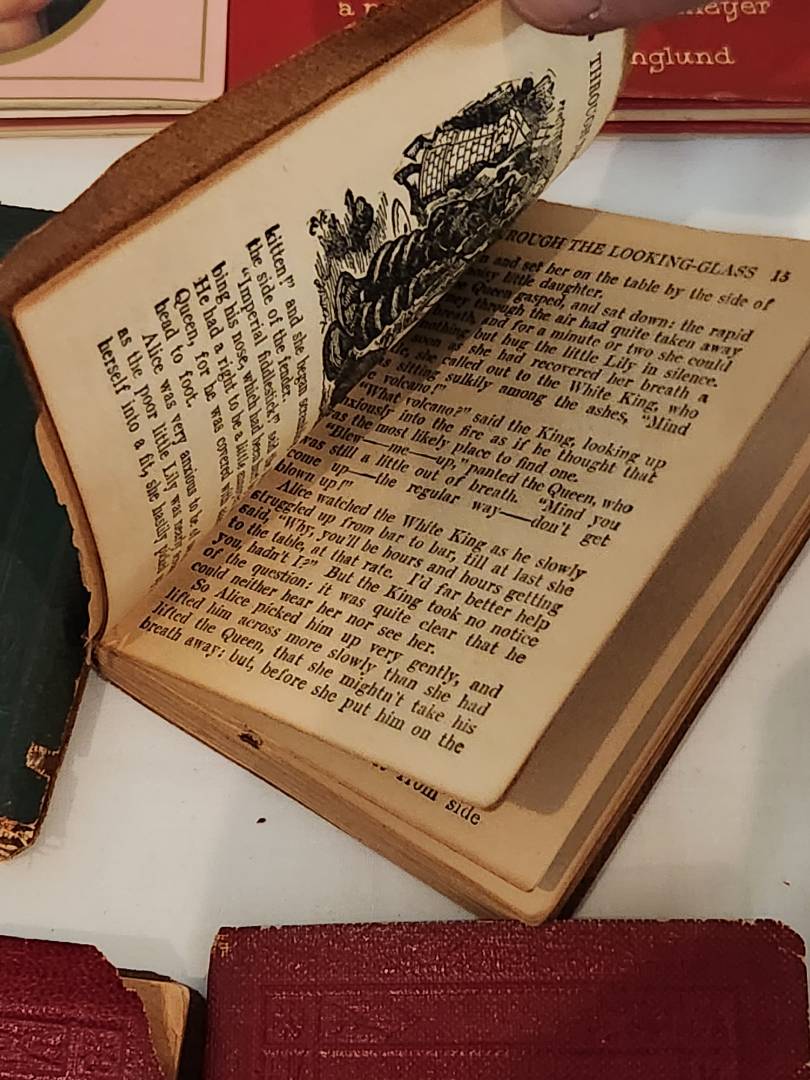 a
meyer
nglund
THROUGH
kitten!" and she began
the side of the fender.
"Imperial fiddlestick!" said
bing his nose, which had been
He had a right to be a little
Queen, for he was covered with
head to foot.
Alice was very anxious to be of
as the poor little Lily was nearly
herself into a fit, she hastily
ROUGH THE LOOKING-GLASS 15
and set her on the table by the side of
little daughter.
Queen gasped, and sat down: the rapid
through the air had quite taken away
breath and for a minute or two she could
nothing but hug the little Lily in silence.
soon as she had recovered her breath a
she called out to the White King, who
sitting sulkily among the ashes, "Mind
volcano!"
"What volcano?" said the King, looking up
anxiously into the fire as if he thought that
as the most likely place to find one.
"Blew—me—up," panted the Queen, who
was still a little out of breath. "Mind you
come up—the regular way—don't get
blown up!"
Alice watched the White King as he slowly
struggled up from bar to bar, till at last she
said, "Why, you'll be hours and hours getting
to the table, at that rate. I'd far better help
you, hadn't I?" But the King took no notice
of the question: it was quite clear that he
could neither hear her nor see her.
So Alice picked him up very gently, and
lifted him across more slowly than she had
lifted the Queen, that she mightn't take his
breath away: but, before she put him on the
from side